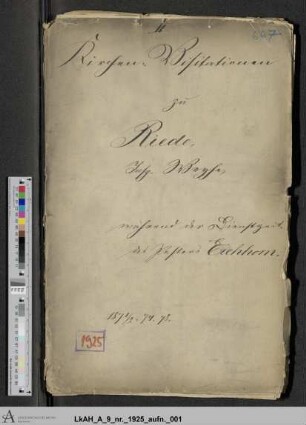 Kirchen-Visitationen
zu
Riede,
Insp. Weyhe,
während der Dienstzeit
des Pastors Eichhorn.
1925
LkAH_A_9_nr._1925_aufn._001